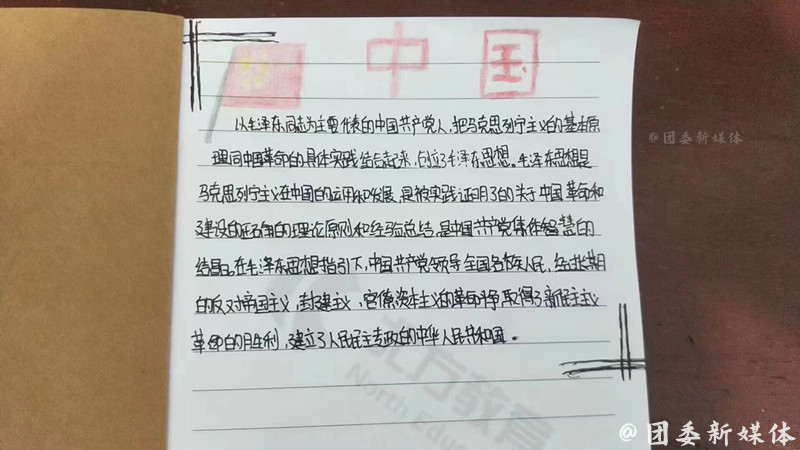 中国
以毛泽东同志为主要代表的中国共产党人，把马克思列宁主义的基本原
理同中国革命的具体实践结合起来，创立了毛泽东思想。毛泽东思想是
马克思列宁主义在中国的应用和发展，是被实践证明了的关于中国革命和
建设的正确的理论原则和经验总结，是中国共产党集体智慧的
结晶。在毛泽东思想指引下，中国共产党领导全国各族人民，经过长期
的反对帝国主义，封建主义，官僚资本主义的革命斗争，取得了新民主主义
革命的胜利，建立了人民民主专政的中华人民共和国。
北方教育
North Educa
@团委新媒体
@团委新媒体